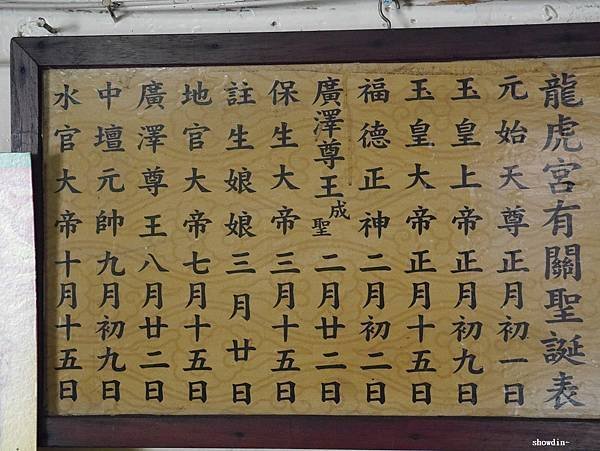 龍虎宮有關聖誕表
元始天尊正月初一日
玉皇上帝正月初九日
玉皇大帝正月十五日
福德正神二月初二日
廣澤尊王成聖二月廿二日
保生大帝三月十五日
註生娘娘三月廿日
地官大帝七月十五日
廣澤尊王八月廿二日
中壇元帥九月初九日
水官大帝十月十五日
showdin~